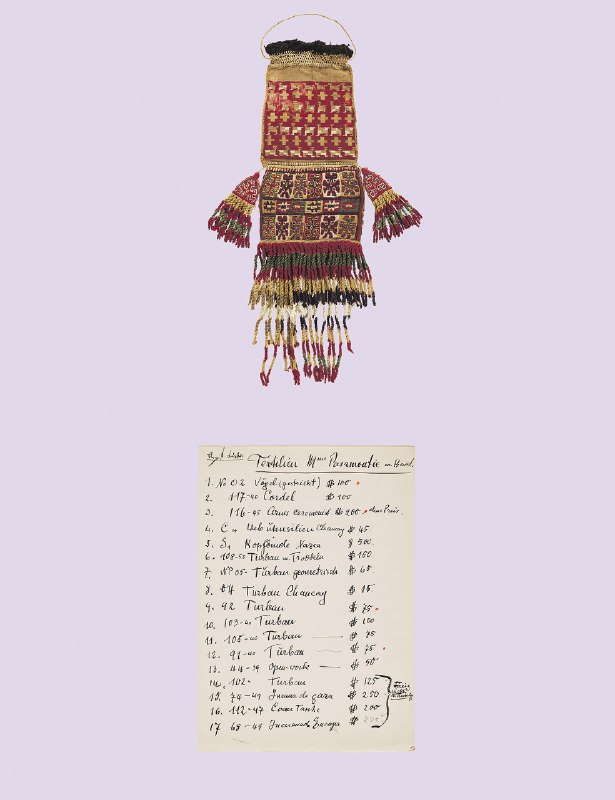 Textilien Mme Passmontie Basel.
1. No 02 Vögel (gestickt) $ 100
2. 117-40 Cordel $ 100
3. 116-45 Arms ceremonial $ 200 ohne Preis.
4. C Chancay $ 45
5. S1 Kopfbinde Nazca $ 500
6. 108-50 Turban m. Trotteln $ 150
7. No 05- Turban geometrisch $ 65
8. 84 Turban Chancay $ 15
9. 92 Turban $ 75
10. 103-40 Turban $ 100
11. 105-40 Turban — $ 75
12. 91-40 Turban — $ 75
13. 44-39 Open-work — $ 50
14. 102- Turban $ 125
15. 74-49 de gasa $ 250
16. 112-47 $ 200
17 68-49 $ 200